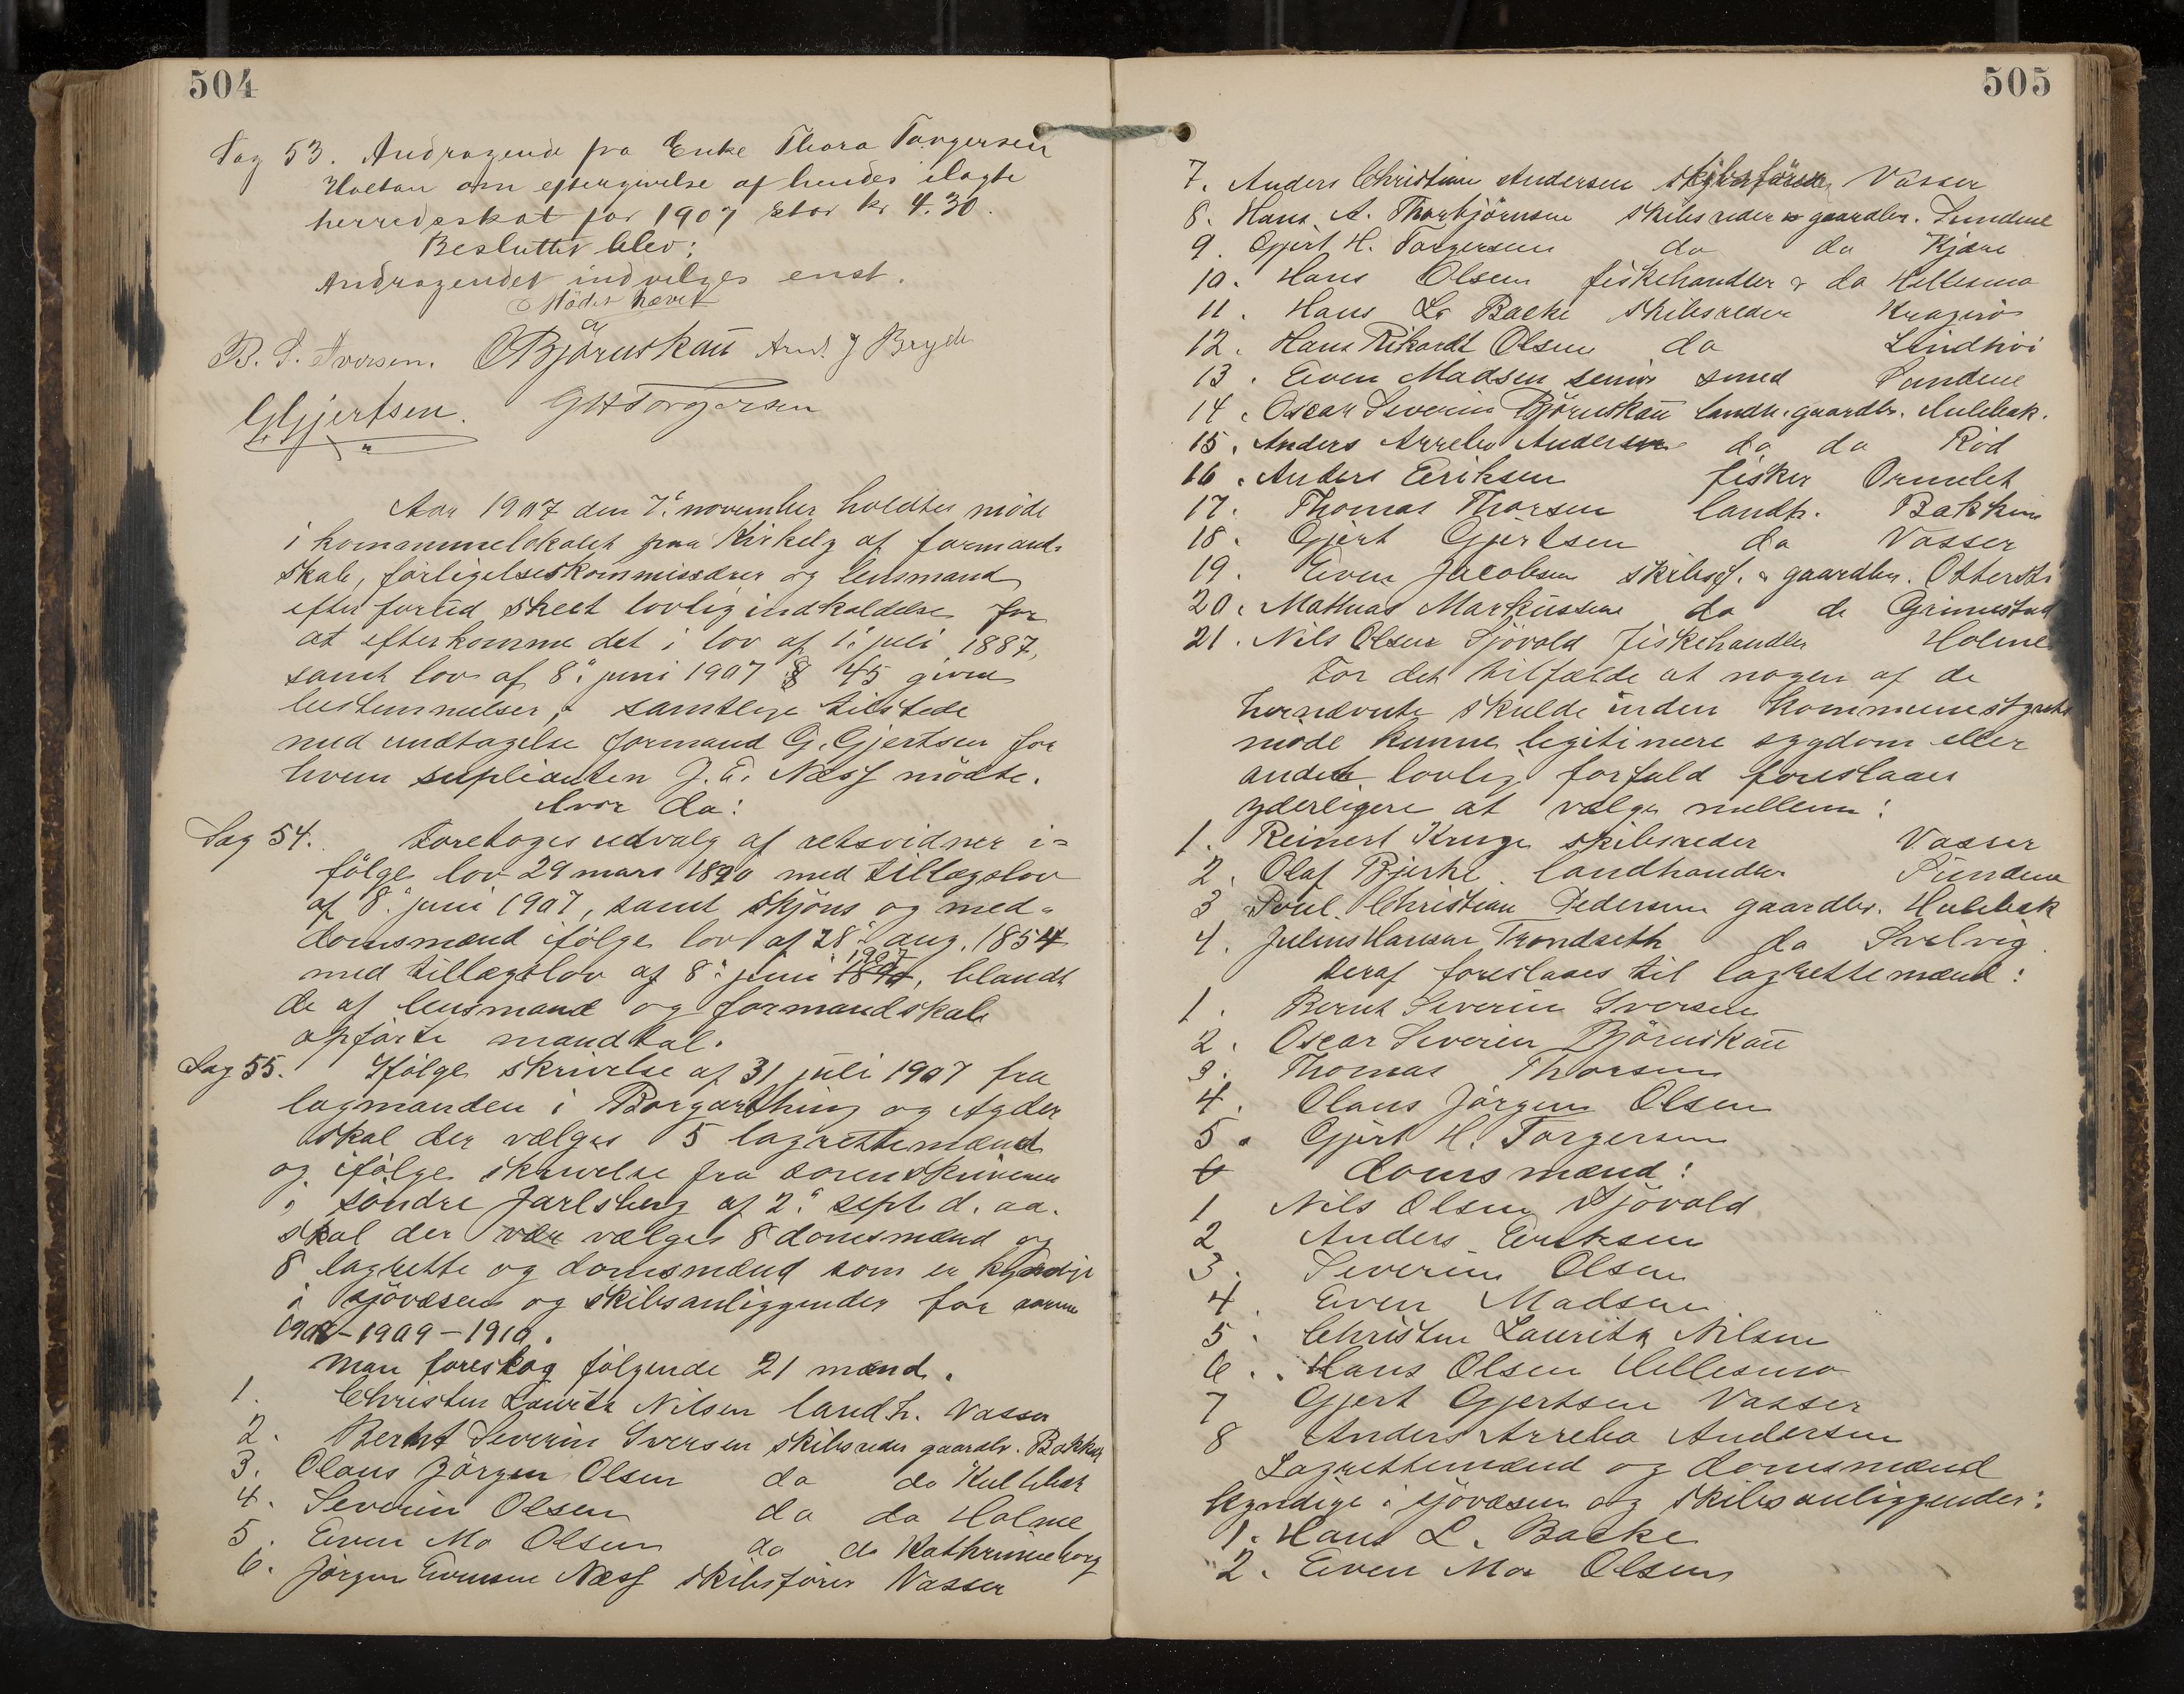 504
Sag 53. Andragende fra Enke Thora Torgersen
Holtan om eftergivelse af hendes ilagte
herredsskat for 1907 stor kr 4.30.
Besluttet blev:
Andragendet indvilges enst.
Mödet hævet
B. S. Iversen. O Björnskau Arnt J Bryde
G Gjertsen. G H Torgersen
Aar 1907 den 7de november holdtes möde
i kommunelokalet paa Kirkely af formand-
skab, forligelseskommissærer og lensmand
efter forud skeet lovlig indkaldelse for
at efterkomme det i lov af 1. juli 1887,
samt lov af 8. juni 1907 § 45 givne
bestemmelser; samtlige tilstede
med undtagelse formand G. Gjertsen for
hvem suplianten J. E. Næss mödte.
hvor da:
Sag 54. Foretoges udvalg af retsvidner i=
fölge lov 29 mars 1890 med tillægslov
af 8. juni 1907, samt skjöns og med=
domsmænd ifölge lov af 28. aug. 1854
med tillægslov af 8. juni 1907, blandt
de af lensmand og formandskab
opförte mandtal.
Sag 55. Ifölge skrivelse af 31 juli 1907 fra
lagmanden i Borgarthing og Agder
skal der vælges 5 lagrettemænd
og ifölge skrivelse fra sorenskriveren
i söndre Jarlsberg af 2. sept. d. aa.
skal der vær vælges 8 domsmænd og
8 lagrette og domsmænd som er kyndige
i sjövæsen og skibsanliggender for aarene
1908-1909-1910.
Man foreslog fölgende 21 mænd.
1. Christen Lauritz Nilsen landh. Vasser
2. Bernt Severin Iversen skibsreder gaardbr. Bakken
3. Olaus Jörgen Olsen do do Hulebak
4. Severin Olsen do do Holme
5. Even Mo Olsen do do Kathrineborg
6. Jörgen Evensen Næss skibsförer Vasser
505
7. Anders Christian Andersen skibsförer Vasser
8. Hans A. Thorbjörnsen skibsreder & gaardbr. Sundene
9. Gjert H. Torgersen do do Kjære
10. Hans Olsen fiskehandler & do Hellesmo
11. Hans L. Backe skibsreder Kragerö
12. Hans Rikardt Olsen do Lindhöi
13. Even Madsen senior smed Sundene
14. Oscar Severin Björnskau landh. gaardbr. Hulebak.
15. Anders Arrebo Andersen do do Röd
16. Anders Eriksen fisker Ormelet
17. Thomas Thorsen landh. Bakken
18. Gjert Gjertsen do Vasser
19. Even Jacobsen skibsf. & gaardbr.
20. Mathias Markussen do do Grimestad
21. Nils Olsen Sjövold fiskehandler Holme
For det tilfælde at nogen af de
hernævnte skulde inden kommunestyrets
möde kunne legitimere sygdom eller
andet lovlig forfald foreslaaes
yderligere at vælge mellem:
1. Reinert Kruge skibsreder Vasser
2. Olaf Bjerke landhandler Sundene
3 Poul Christian Pedersen gaardbr. Hulebak
4. Julius Hansen Trondseth do Svelvig
Deraf foreslaaes til lagrettemænd:
1. Bernt Severin Iversen
2. Oscar Severin Björnskau
3. Thomas Thorsen
4. Olaus Jörgen Olsen
5. Gjert H. Torgersen
6 domsmænd:
1 Nils Olsen Sjövold
2 Anders Eriksen
3. Severin Olsen
4. Even Madsen
5. Christen Lauritz Nilsen
6. Hans Olsen Hellesmo
7 Gjert Gjertsen Vasser
8 Anders Arrebo Andersen
Lagrettemænd og domsmænd
kyndige i sjövæsen og skibsanliggender:
1. Hans L. Backe
2. Even Mo Olsen